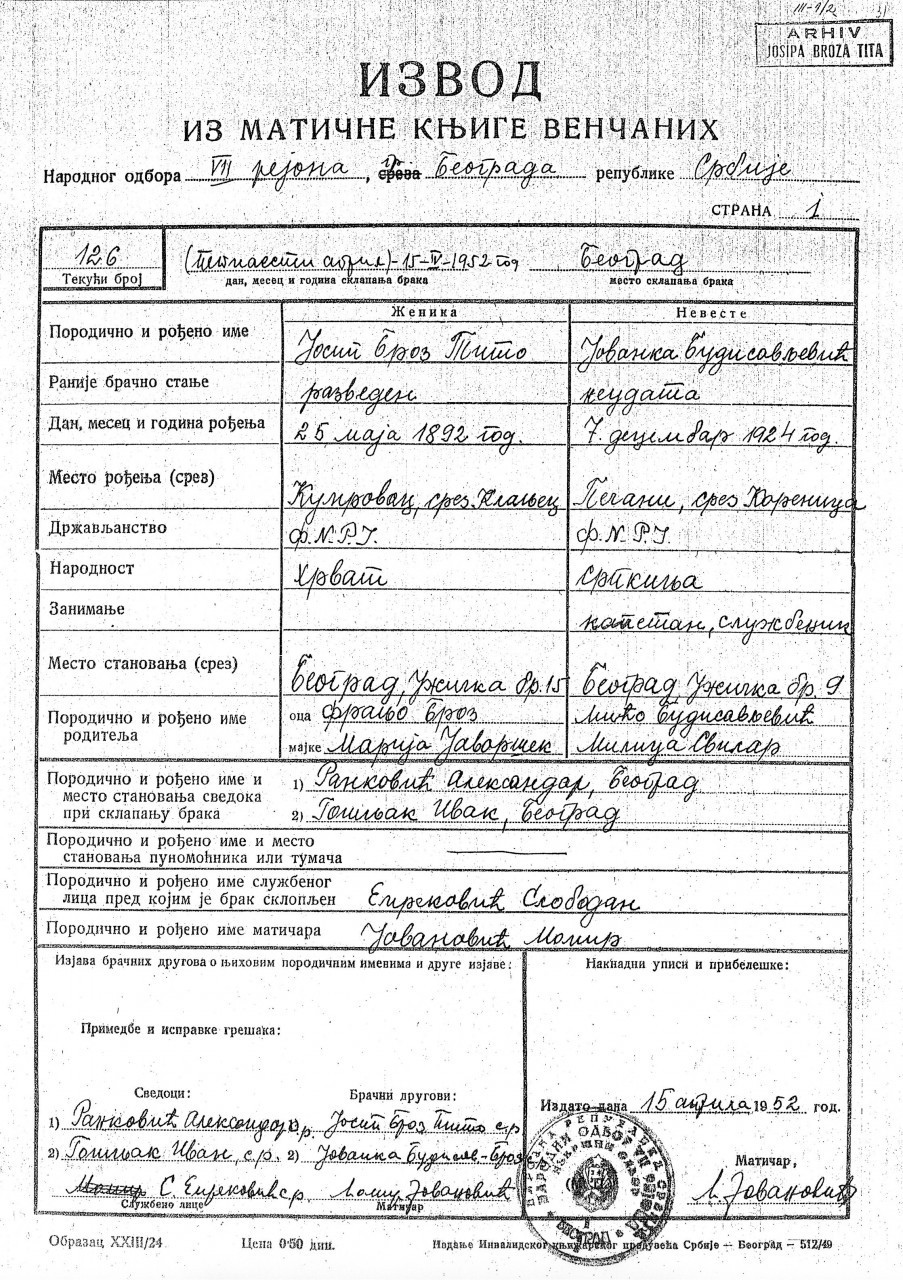 III-9/2
ARHIV
JOSIPA BROZA TITA
ИЗВОД
ИЗ МАТИЧНЕ КЊИГЕ ВЕНЧАНИХ
Народног одбора VII рејона, среза гр. Београда републике Србије
СТРАНА 1
126 (петнаести април)-15-IV-1952 год Београд
Текући број дан, месец и година склапања брака место склапања брака
Женика Невесте
Породично и рођено име Јосип Броз Тито Јованка Будисављевић
Раније брачно стање разведен неудата
Дан, месец и година рођења 25 маја 1892 год. 7. децембар 1924 год.
Место рођења (срез) Кумровац, срез Клањец Пећани, срез Кореница
Држављанство Ф.N.Р.Ј. Ф.N.Р.Ј.
Народност Хрват српкиња
Занимање капетан, службеник
Место становања (срез) Београд, Ужичка бр. 15 Београд, Ужичка бр. 9
Породично и рођено име оца Фрањо Броз Мићо Будисављевић
родитеља мајке Марија Јаворшек Милица Свилар
Породично и рођено име и 1) Ранковић Александар, Београд
место становања сведока
при склапању брака 2) Гошњак Иван, Београд
Породично и рођено име и место
становања пуномоћника или тумача
Породично и рођено име службеног
лица пред којим је брак склопљен Слободан
Породично и рођено име матичара Јовановић Момир
Изјава брачних другова о њиховим породичним именима и друге изјаве: Накнадни уписи и прибелешке:
Примедбе и исправке грешака:
Сведоци: Брачни другови:
Издато дана 15 априла 1952 год.
1) Ранковић Александар, с.р. Јосип Броз Тито с.р.
2) Гошњак Иван, с.р. 2) Јованка Будисав-Броз
Матичар,
Момир С. с.р. Момир Јовановић М. Јовановић
Службено лице Матичар
БЕОГРАД
Образац XXIII/24 Цена 0·50 дин. Издање Инвалидског књижарског предузећа Србије — Београд — 512/49